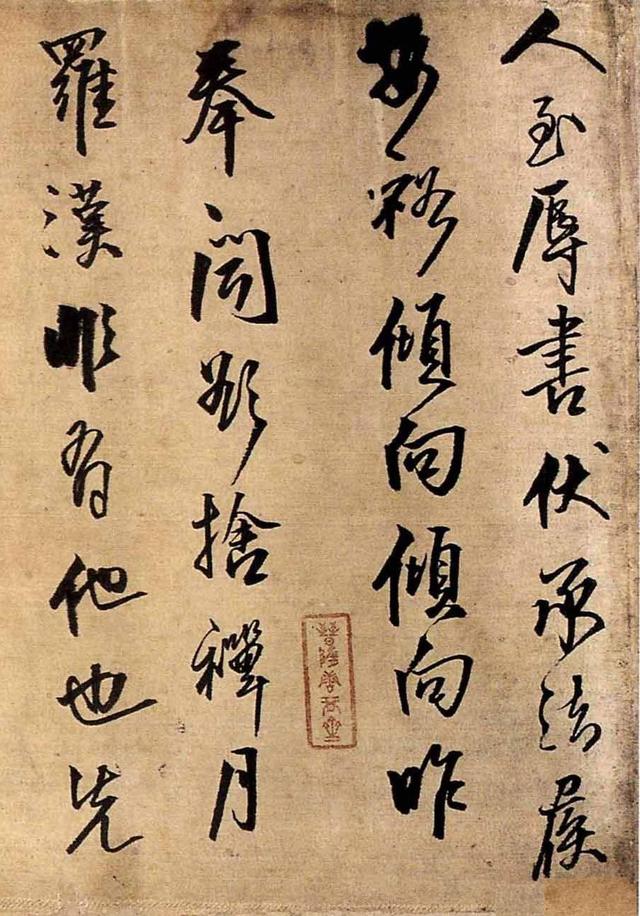 人至辱書伏承法候
安裕傾向傾向昨
奉聞欲捨禪月
羅漢非有他也先